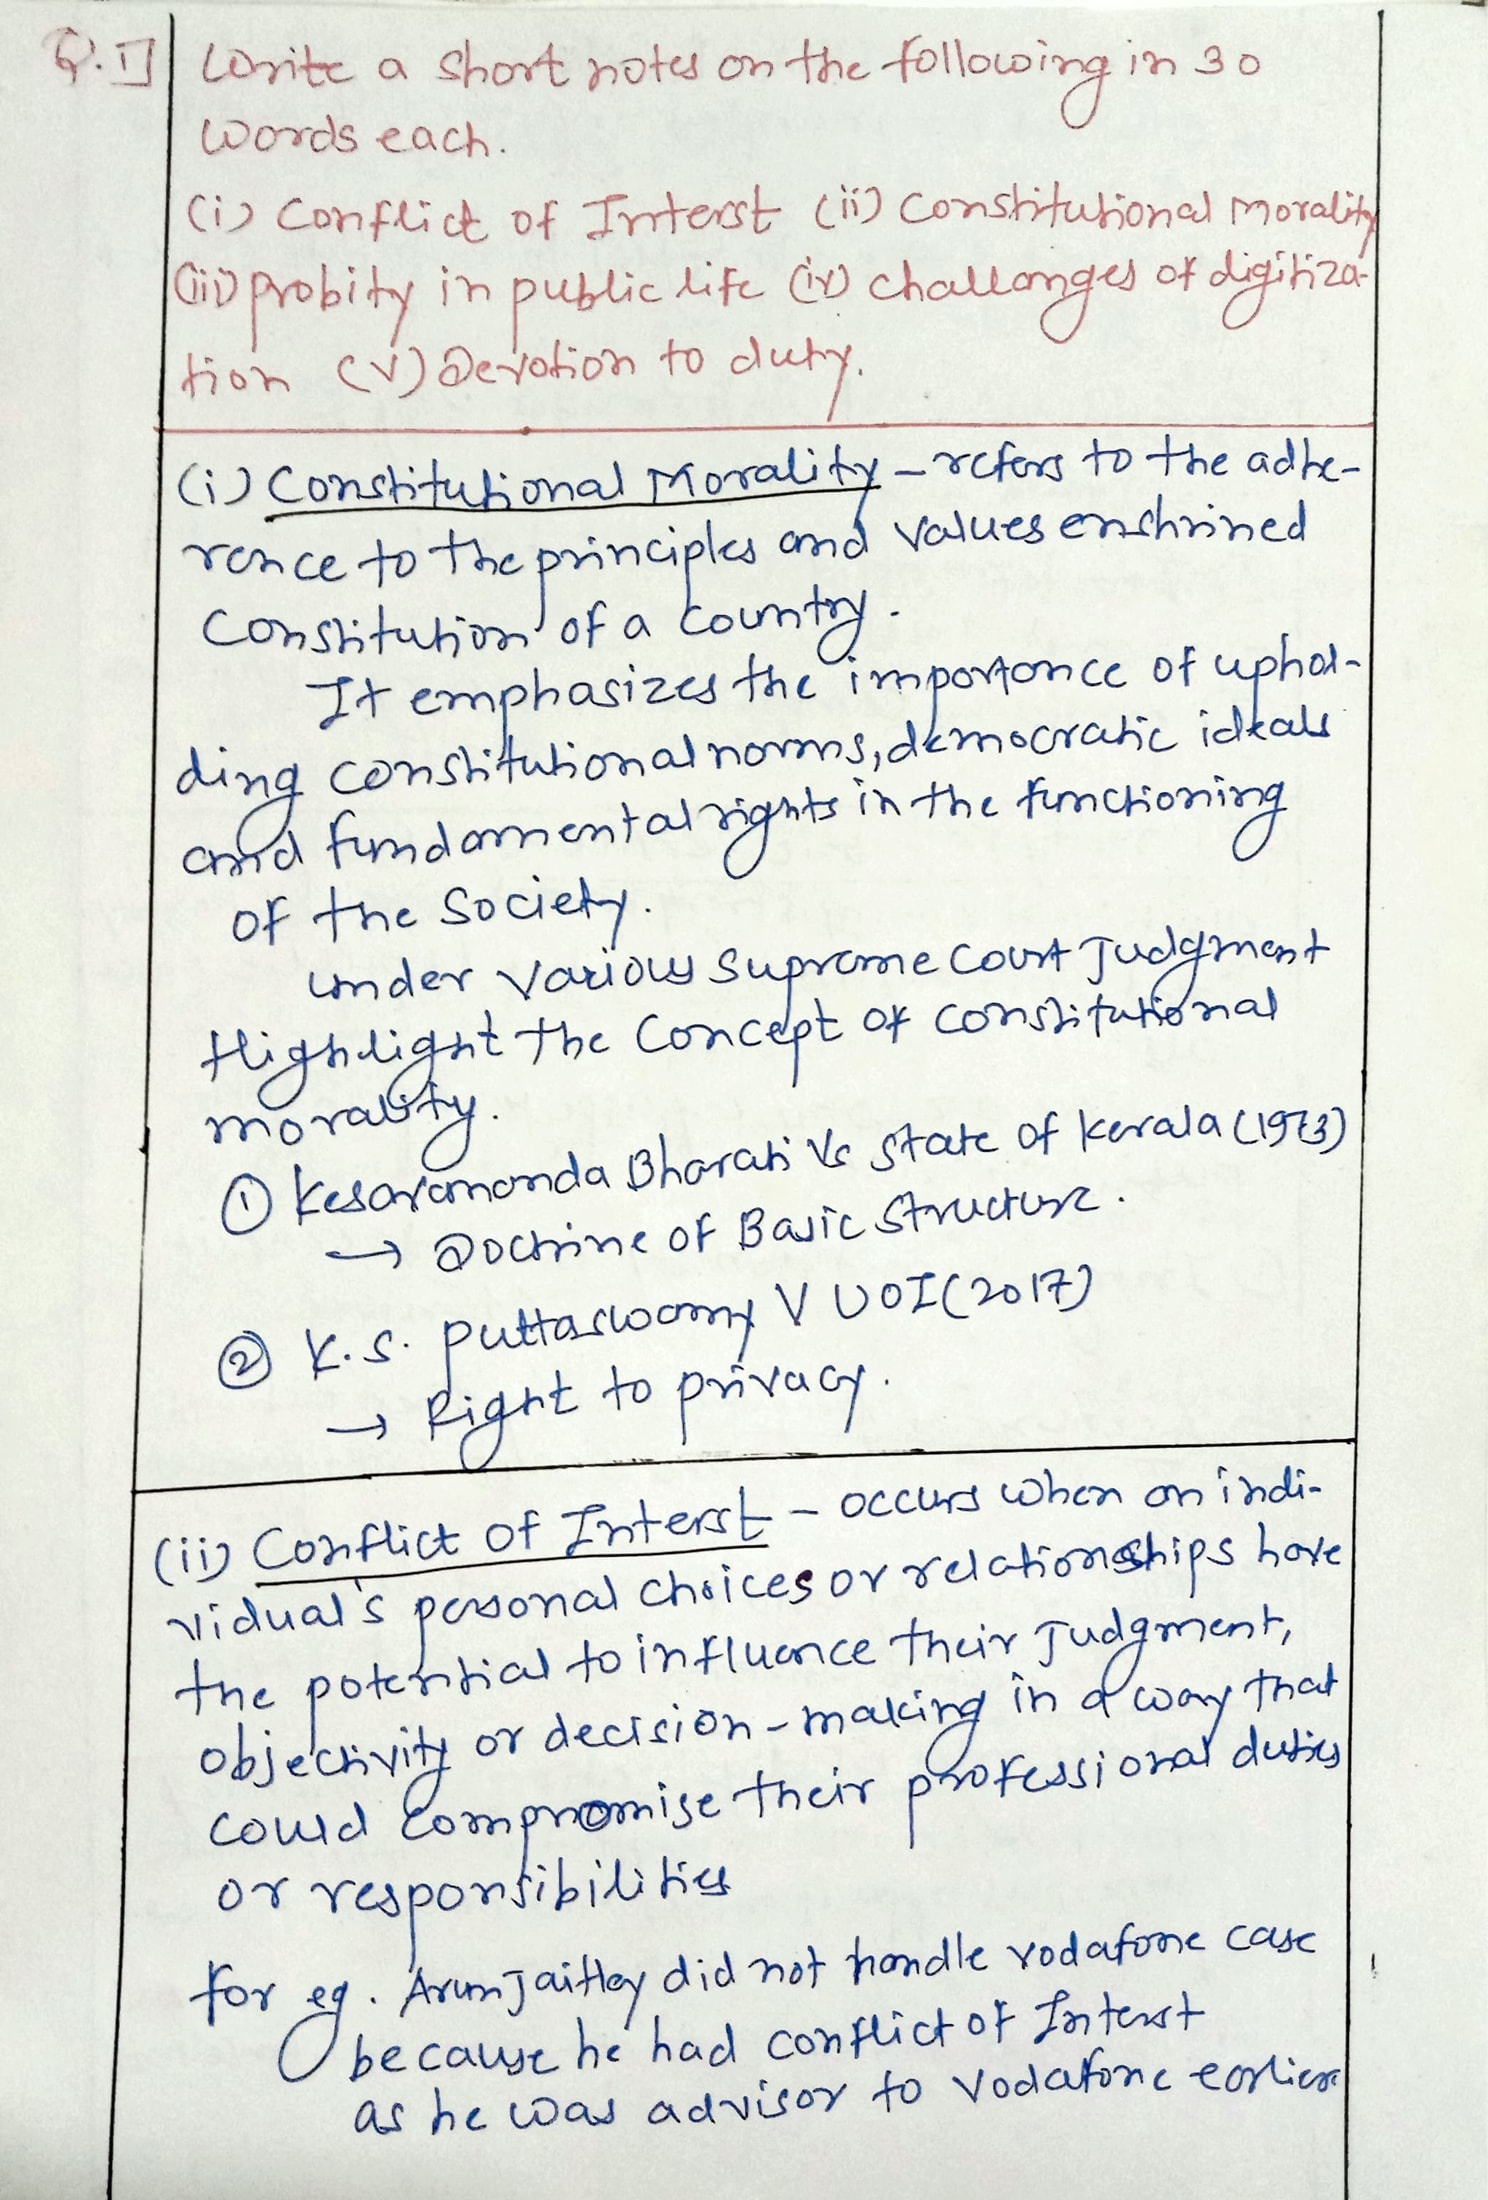 Q.1] Write a short notes on the following in 30
words each.
(i) Conflict of Interst (ii) Constitutional Morality
(iii) probity in public life (iv) challanges of digitiza-
tion (v) Devotion to duty.
(i) Constitutional Morality - refers to the adhe-
rence to the principles and values enshrined
Constitution of a Country.
It emphasizes the importance of uphol-
ding constitutional norms, democratic ideals
and fundamental rights in the functioning
of the Society.
under various Supreme Court Judgment
Highlight the Concept of constitutional
morality.
① Kesavananda Bharati Vs State of Kerala (1973)
→ Doctrine of Basic Structure.
② K.S. Puttaswamy V UOI (2017)
→ Right to privacy.
(ii) Conflict of Interst - occurs when an indi-
vidual's personal choices or relationships have
the potential to influence their Judgment,
objectivity or decision-making in a way that
could compromise their professional duties
or responsibilities
for eg. Arun Jaitley did not handle vodafone case
because he had conflict of Interst
as he was advisor to vodafone earlier